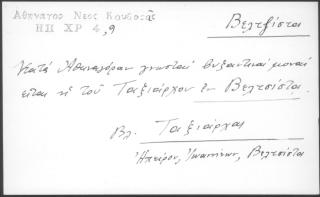 Αθηναγορας Νεος Κουβαρᾶς
ΗΠ ΧΡ 4,9
Βελτσίστα
Κατά Ἀθηναγόραν γνωσταί βυζαντιναί μοναί
εἶναι ἡ τοῦ Ταξιάρχου ἐν Βελτσίστᾳ.
Βλ. Ταξιάρχαι
Ἠπείρου, Ἰωαννίνων, Βελτσίστα